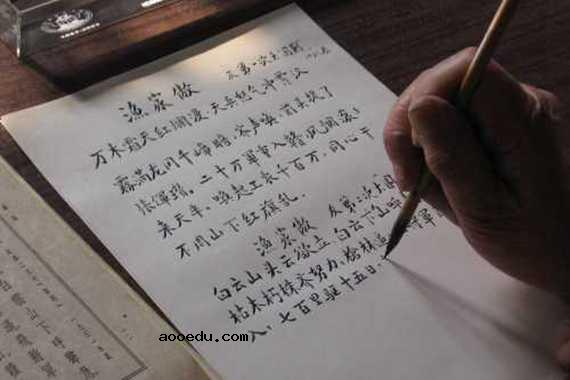 渔家傲 反第一次大围剿
万木霜天红烂漫,天兵怒气冲霄汉
雾满龙冈千嶂暗,齐声唤,前头捉了
张辉瓒。二十万军重入赣,风烟滚滚
来天半。唤起工农千百万,同心干
不周山下红旗乱。
渔家傲 反第二次大围
白云山头云欲立,白云山下呼
枯木朽株齐努力,枪林逼 将军
入。七百里驱十五日,
aooedu.com